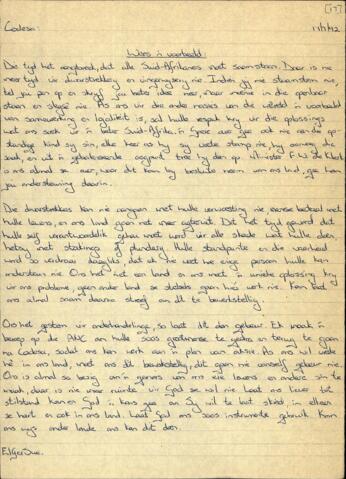 [17]
Codesa: 11/7/92
Wees 'n voorbeeld.
Die tyd het aangebreek, dat alle Suid-Afrikaners moet saamstaan. Daar is nie
meer tyd vir dwarstrekkery en uitgangsy nie. Indien jy nie saamstem nie,
tel jou pen op en skryf jou
staan en skree nie. As ons vir die ander nasies van die wêreld 'n voorbeeld
van samewerking en lojaliteit is, sal hulle respek kry vir die oplossings
wat ons soek vir 'n beter Suid-Afrika.
standige kind sy sin, elke keer as hy sy voete stamp nie, hy
saad, en uit 'n gebalanseerde oogpunt tree hy dan op. Minister F.W de Klerk
is ons almal se eer, want dit kom by besluite neem van ons kant, gee hom
jou ondersteuning daarin.
Die dwarstrekkers kan nie aangaan met hulle verwoesting nie, mense besteed met
hulle lewens, en ons land gaan net meer agteruit. Dit het tyd geword dat
hulle self verantwoordelik gehou moet word vir alle skade wat hulle doen
hetsy met stakings of plundery. Hulle standpunte en die waarheid
word so verdraai daagliks, dat ek nie weet hoe enige persoon hulle kan
ondersteun nie. Ons het net een land en ons moet 'n unieke oplossing kry
vir ons probleme, geen ander land se statodes gaan hier werk nie. Kom laat
ons almal saam daarna streef om dit te bewerkstellig.
Ons het gestem vir onderhandelinge, so laat dit dan gebeur. Ek maak 'n
beroep op die ANC om hulle soos grootmense te gedra en terug te gaan
na Codesa, sodat ons kan werk aan 'n plan van aksie. As ons wil vrede
hê in ons land, moet ons dit bewerkstellig, dit gaan nie vanself gebeur nie.
Ons is almal so besig om 'n gemors van ons eie lewens en ander s'n te
maak, daar is nie meer ruimte vir God se wil nie. Laat ons liewer tot
stilstand kom en God 'n kans gee om Sy wil te laat skied, in elkeen
se hart en ook in ons land. Laat God ons soos instrumente gebruik. Kom
ons wys ander lande ons kan dit doen.